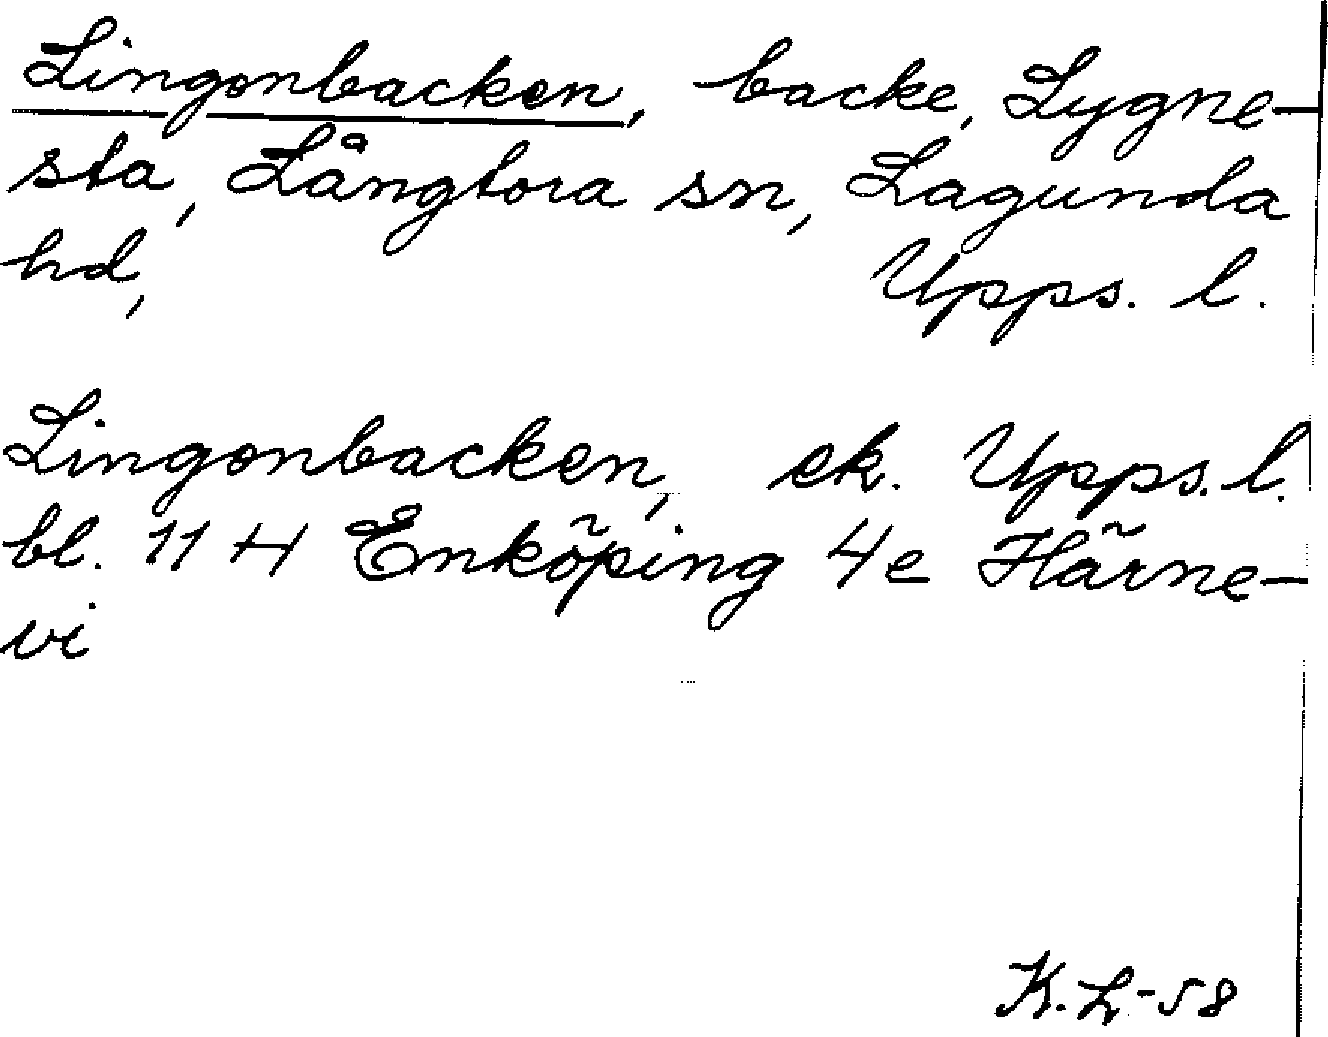 Lingonbacken, backe, Lygne-
sta, Långtora sn, Lagunda
hd, Upps. l.
Lingonbacken, ek. Upps. l.
bl. 11 H Enköping 4e Härne-
vi
K. L-58